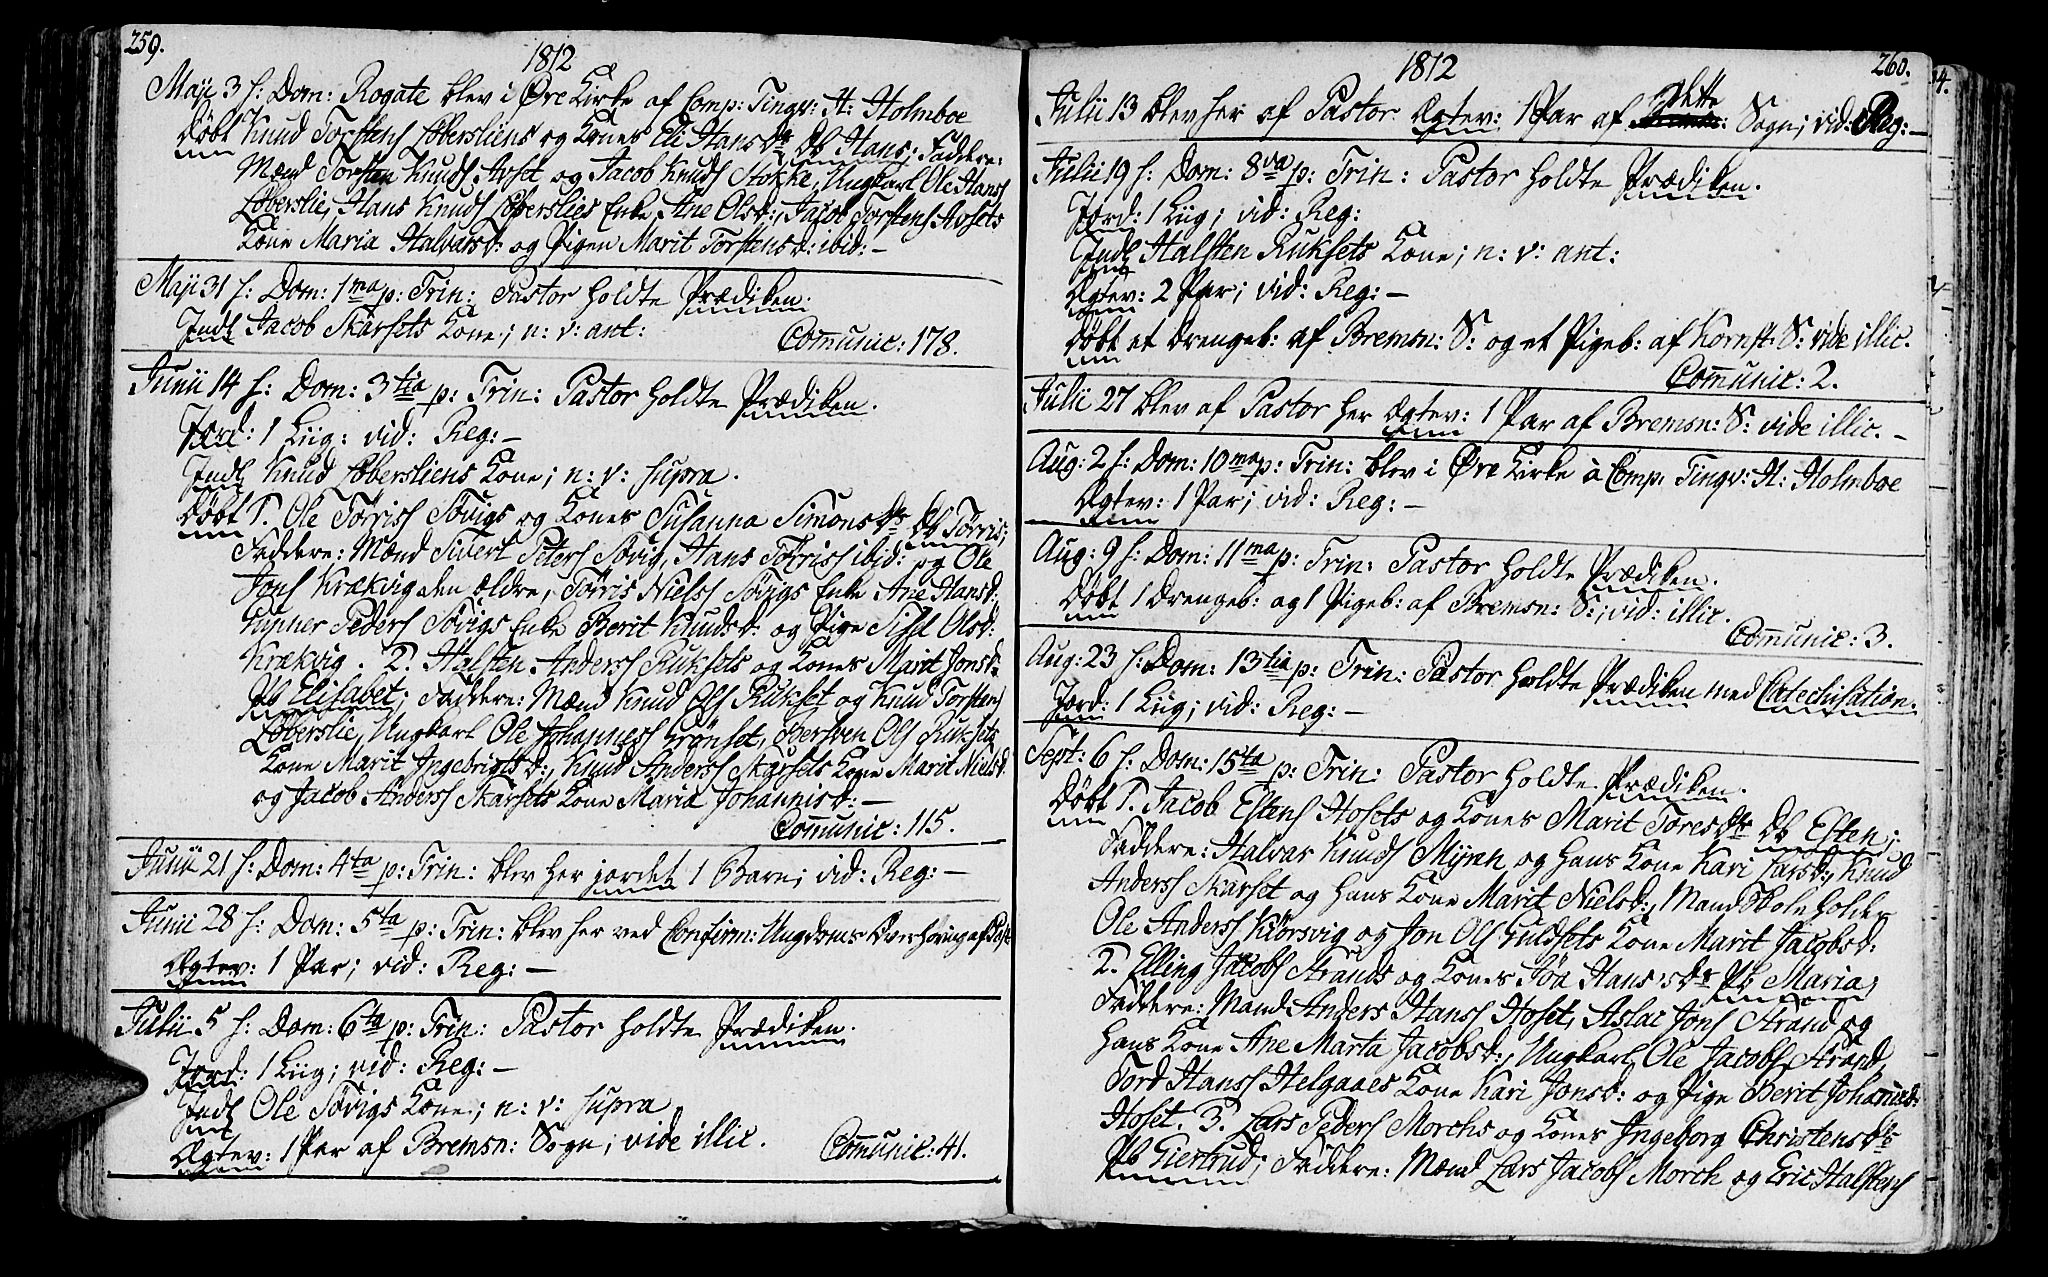 259.
1812
Maji 3 h: Dom: Rogate blev i Øre Kirke af Comp: Tingv: H: Holmboe
Døbt Knud Torstens Løbersliens og Kones Eli Hansdr Db Hans; Faddere:
Mænd Torsten Knuds Avset og Jacob Knuds Stokke, Ungkarl Ole Hans
Løberslie, Hans Knuds Løberslies Enke Ane Olsd:, Jacob Torstens Avsets
Kone Maria Halvarsd: og Pigen Marit Torstensd: ibid: –
Maji 31 h: Dom: 1ma p: Trin: Pastor holdte Prædiken.
Indl Jacob Skarsets Kone; n: v: ant:
Com̅unic: 178.
Junii 14 h: Dom: 3tia p: Trin: Pastor holdte Prædiken.
Jord: 1 Liig: vid: Reg: –
Indl Knud Løbersliens Kone; n: v: supra.
Døbt 1. Ole Torriss Tøvigs og Kones Susanna Simonsdr Db Tørris;
Faddere: Mænd Sivert Peters Tøvig, Hans Tørriss ibid: og Ole
Jons Krækvig den ældre, Tørris Niels Tøvigs Enke Ane Hansd:
Gunner Peders Tøvigs Enke Berit Knudsd: og Pige Sisel Olsd:
Krækvig. 2. Halsten Anderss Ruksets og Kones Marit Jonsd:
Pb Elisabet; Faddere: Mænd Knud Ols Rukset og Knud Torstens
Løberslie, Ungkarl Ole Johanness Grønset, Bersven Ols Ruksets
Kone Marit Ingebrigtsd:, Knud Anderss Skarsets Kone Marit Nielsd:
og Jacob Anderss Skarsets Kone Maria Johannisd: –
Com̅unic: 115.
Junii 21 h: Dom: 4ta p: Trin: blev her jordet 1 Barn; vid: Reg: –
Junii 28 h: Dom: 5ta p: Trin: blev her ved Confirm: Ungdoms Overhøring af Past:
Ægtev: 1 Par; vid: Reg: –
Julii 5 h: Dom: 6ta p: Trin: Pastor holdte Prædiken.
Jord: 1 Liig; vid: Reg: –
Indl Ole Tøvigs Kone; n: v: supra
Ægtev: 1 Par af Bremsn: Sogn; vide illic.
Com̅unic: 41.
1812
260.
Julii 13 blev her af Pastor Ægtev: 1 Par af dette Sogn; vid: Reg: –
Julii 19 h: Dom: 8va p: Trin: Pastor holdte Prædiken.
Jord: 1 Liig; vid: Reg:
Indl Halsten Ruksets Kone; n: v: ant:
Ægtev: 2 Par; vid: Reg: –
Døbt et Drengeb: af Bremsn: S: og et Pigeb: af Kornst: S: vide illic.
Com̅unic: 2.
Julii 27 blev af Pastor her Ægtev: 1 Par af Bremsn: S: vide illic. –
Aug: 2 h: Dom: 10ma p: Trin: blev i Øre Kirke a Comp: Tingv: H: Holmboe
Ægtev: 1 Par; vid: Reg: –
Aug: 9 h: Dom: 11ma p: Trin: Pastor holdte Prædiken.
Døbt 1 Drengeb: og 1 Pigeb: af Bremsn: S:; vid: illic.
Com̅unic: 3.
Aug: 23 h: Dom: 13tia p: Trin: Pastor holdte Prædiken med Catechisation.
Jord: 1 Liig; vid: Reg: –
Sept: 6 h: Dom: 15ta p: Trin: Pastor holdte Prædiken.
Døbt 1. Jacob Estens Hosets og Kones Marit Toresdr Db Esten;
Faddere: Halvar Knuds Myhh og hans Kone Kari Larsd:, Knud
Anderss Skarset og hans Kone Marit Nielsd:, Mand Skoleholder
Ole Anderss Kiørsvig og Jon Ols Guldsets Kone Marit Jacobsd:
2. Elling Jacobs Strands og Kones Søa Hansdr Pb Maria;
Faddere: Mænd Anders Hanss Hoset, Aslac Jons Strand og
hans Kone Ane Marta Jacobsd:, Ungkarl Ole Jacobs Strand,
Tord Hanss Helgaaes Kone Kari Jonsd: og Pige Berit Johanisd:
Hoset. 3. Lars Peders Morchs og Kones Ingeborg Christensdr
Pb Giertrud; Faddere: Mænd Lars Jacobs Morch og Eric Halstens